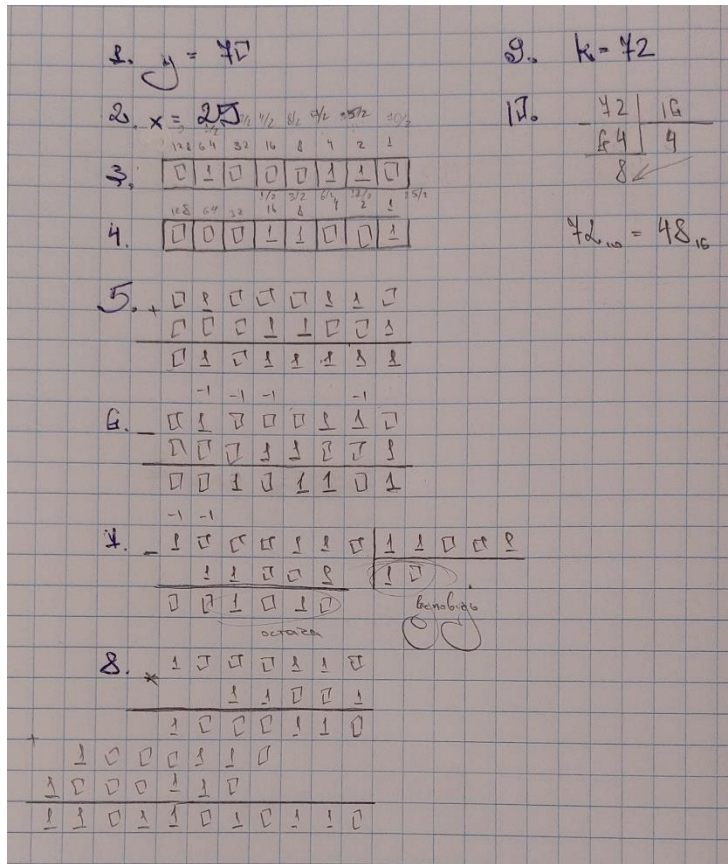 1. y = 70
2. x = 25
128 64 32 16 8 4 2 1
3. 0 1 0 0 0 1 1 0
128 64 32 16 8 4 2 1
4. 0 0 0 1 1 0 0 1
5. + 0 1 0 0 0 1 1 0
0 0 0 1 1 0 0 1
0 1 0 1 1 1 1 1
-1 -1 -1 -1
6. - 0 1 0 0 0 1 1 0
0 0 0 1 1 0 0 1
0 0 1 0 1 1 0 1
-1 -1
7. - 1 0 0 0 1 1 0 | 1 1 0 0 1
1 1 0 0 1 | 1 0
0 0 1 0 1 0 Відповідь
остача
8. × 1 0 0 0 1 1 0
1 1 0 0 1
1 0 0 0 1 1 0
+ 1 0 0 0 1 1 0
1 0 0 0 1 1 0
1 1 0 1 1 0 1 0 1 1 0
9. k = 72
10. - 72 | 16
64 | 4
8
72₁₀ = 48₁₆